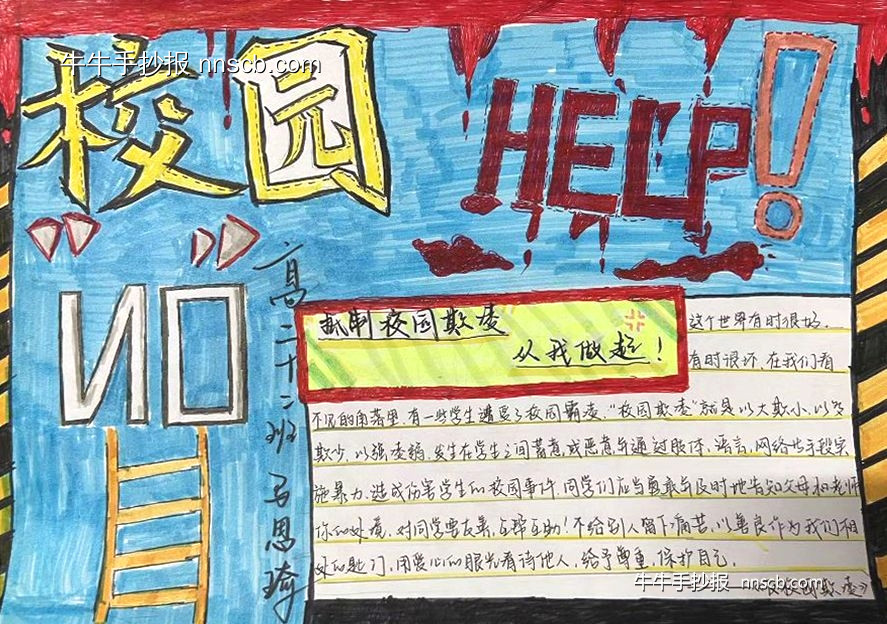 牛牛手抄报 nnscb.com
校园
HELP!
“ ”
ИO
高二十二班 马思琦
抵制校园欺凌
从我做起!
这个世界有时很好,
有时很坏,在我们看
不见的角落里,有一些学生遭受了校园霸凌,“校园欺凌”就是以大欺小,以多
欺少,以强凌弱,发生在学生之间蓄意或恶意并通过肢体、语言、网络等手段实
施暴力,造成伤害学生的校园事件,同学们应当勇敢与及时地告知父母和老师
你的处境,对同学要友善,互帮互助!不给别人留下痛苦,以善良作为我们相
处的
用爱心的眼光看待他人,给予尊重,保护自己。
牛牛手抄报 nnscb.com
校园欺凌》